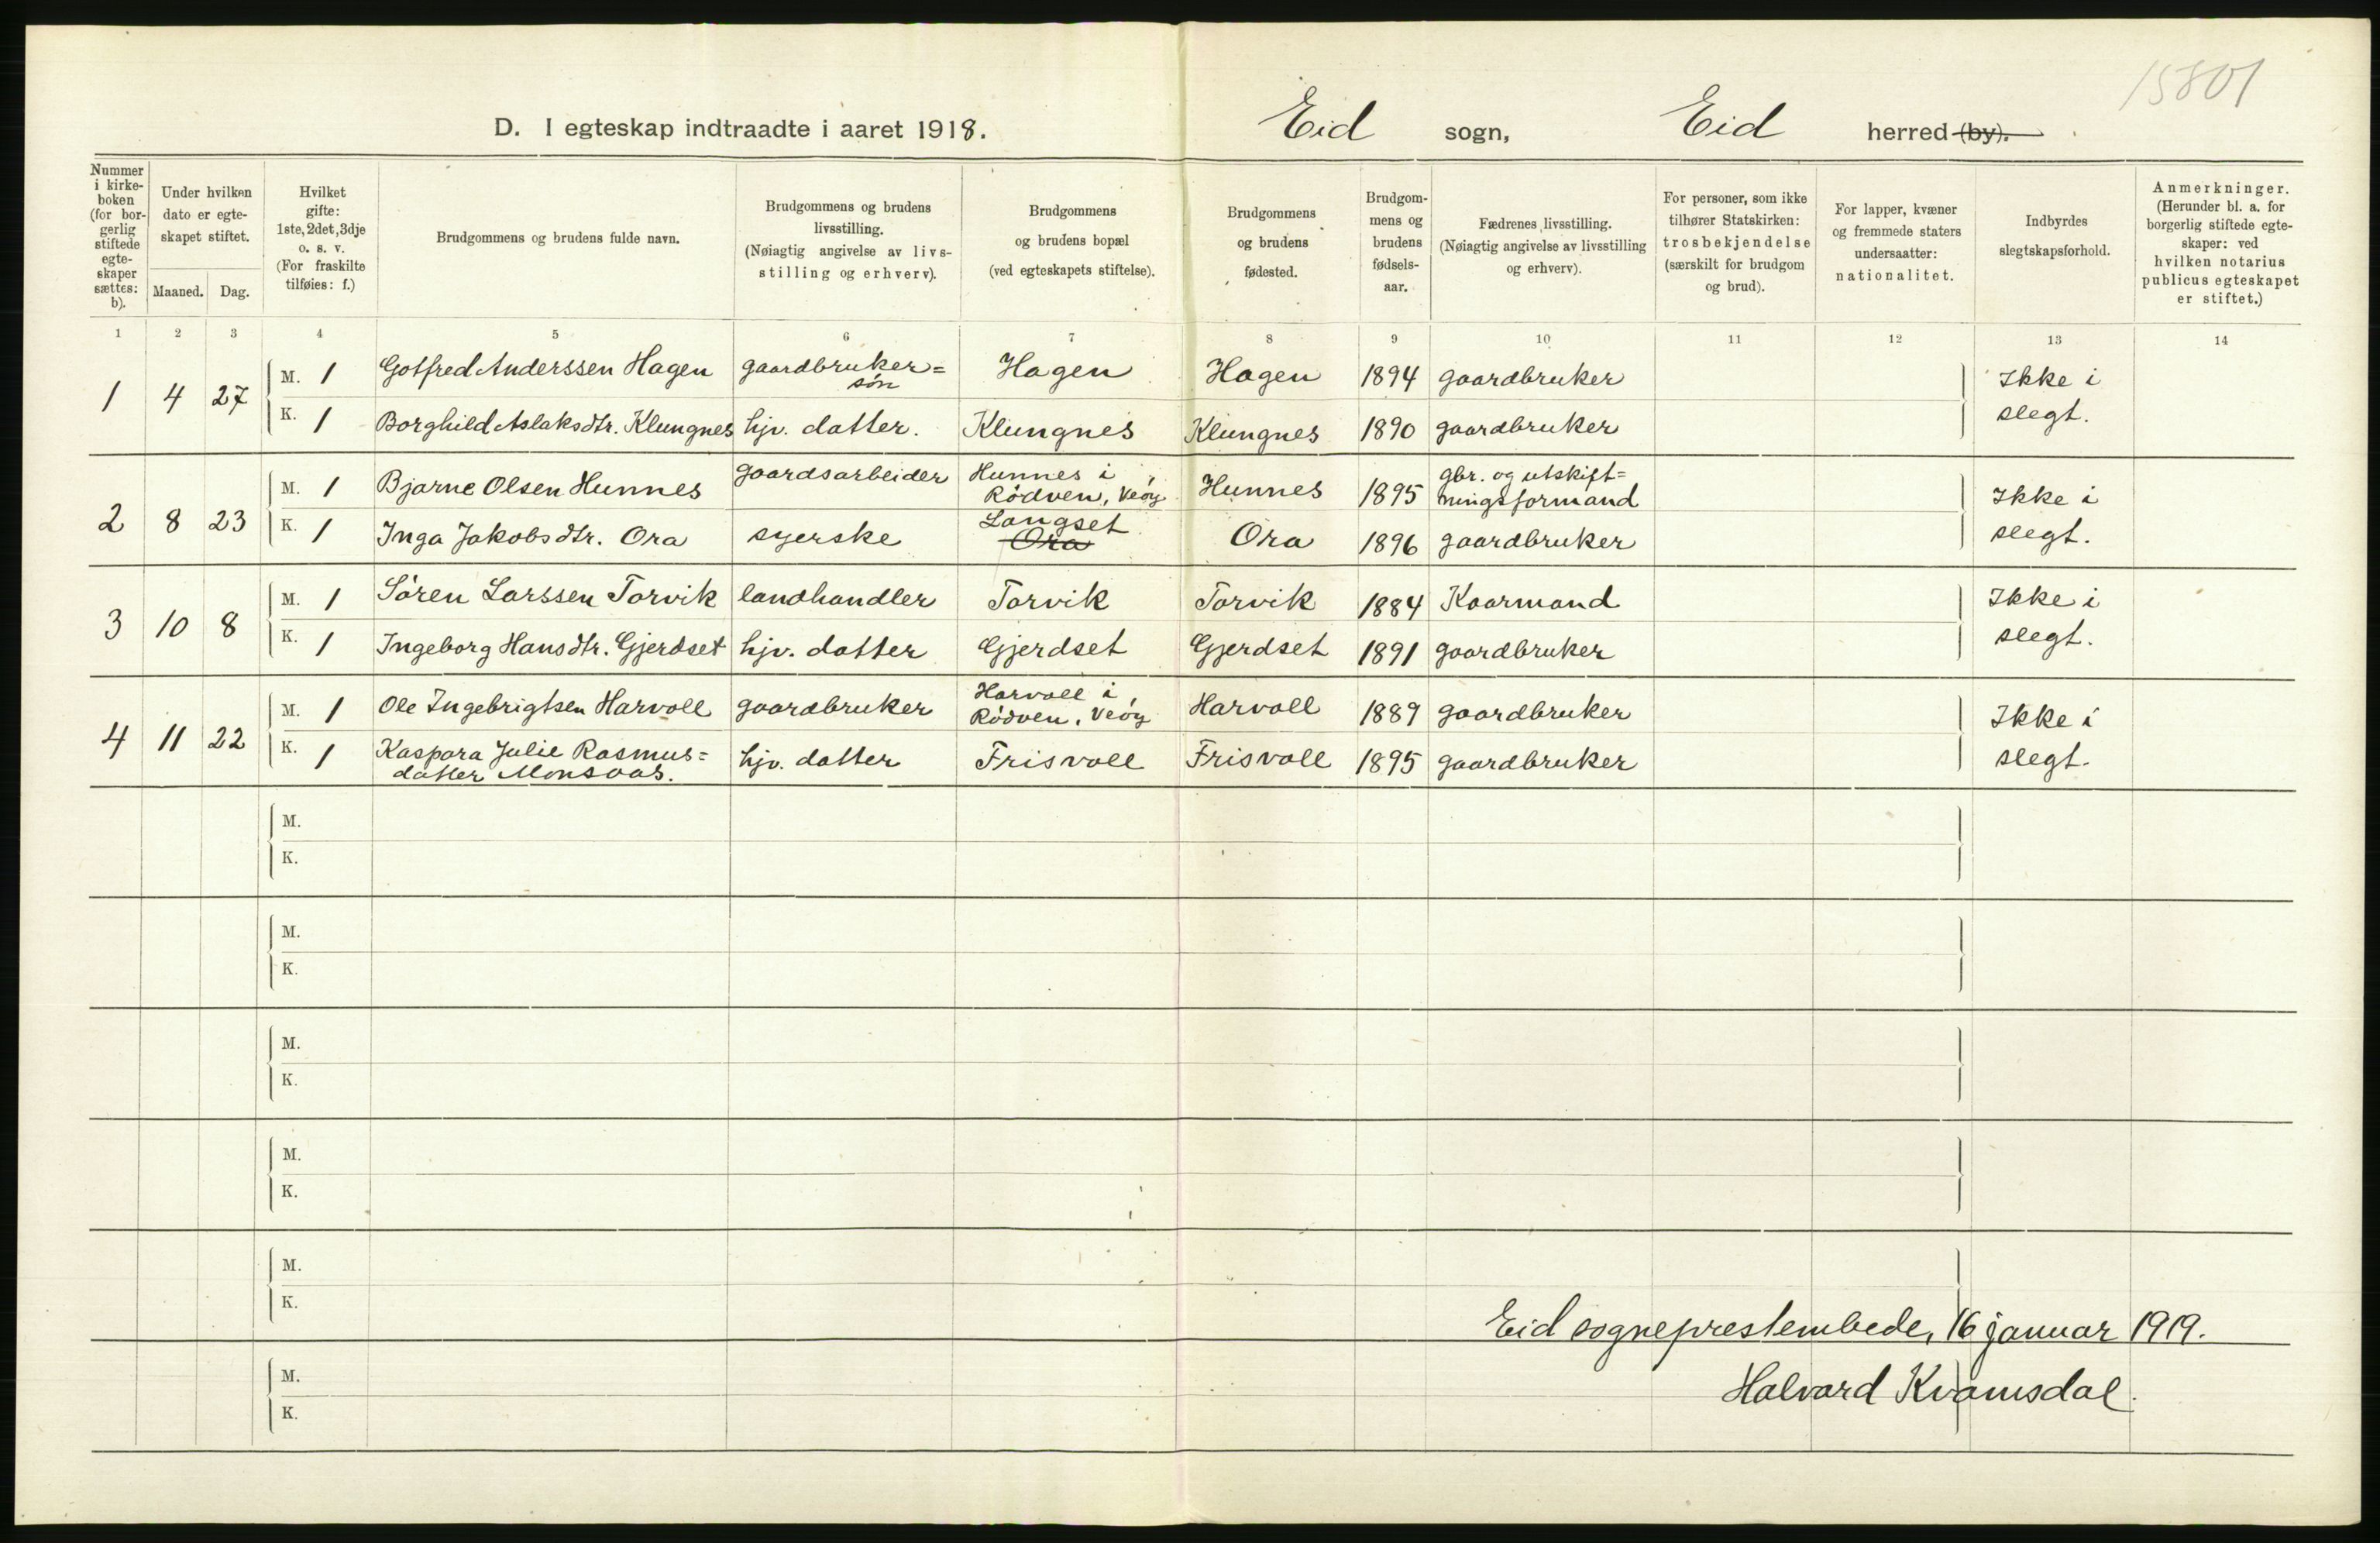 15801
D. I egteskap indtraadte i aaret 1918.
Eid sogn, Eid herred (by).
Nummer i kirke-boken (for bor-gerlig stiftede egte-skaper sættes: b).
Under hvilken dato er egte-skapet stiftet.
Maaned. Dag.
Hvilket gifte: 1ste, 2det, 3dje o. s. v. (For fraskilte tilføies: f.)
Brudgommens og brudens fulde navn.
Brudgommens og brudens livsstilling. (Nøiagtig angivelse av livs-stilling og erhverv).
Brudgommens og brudens bopæl (ved egteskapets stiftelse).
Brudgommens og brudens fødested.
Brudgom-mens og brudens fødsels-aar.
Fædrenes livsstilling. (Nøiagtig angivelse av livsstilling og erhverv).
For personer, som ikke tilhører Statskirken: trosbekjendelse (særskilt for brudgom og brud).
For lapper, kvæner og fremmede staters undersaatter: nationalitet.
Indbyrdes slegtskapsforhold.
Anmerkninger. (Herunder bl. a. for borgerlig stiftede egte-skaper: ved hvilken notarius publicus egteskapet er stiftet.)
1 2 3 4 5 6 7 8 9 10 11 12 13 14
1 4 27 M. 1 Gotfred Anderssen Hagen gaardbruker= søn Hagen Hagen 1894 gaardbruker Ikke i
K. 1 Borghild Aslaksdtr. Klungnes hjv. datter. Klungnes Klungnes 1890 gaardbruker slegt.
2 8 23 M. 1 Bjarne Olsen Hunnes gaardsarbeider Hunnes i Rödven, Veöy Hunnes 1895 gbr. og utskift= ningsformand Ikke i
K. 1 Inga Jakobsdtr. Ora syerske Langset Ora Ora 1896 gaardbruker slegt.
3 10 8 M. 1 Sören Larssen Torvik landhandler Torvik Torvik 1884 Kaarmand Ikke i
K. 1 Ingeborg Hansdtr. Gjerdset hjv. datter Gjerdset Gjerdset 1891 gaardbruker slegt.
4 11 22 M. 1 Ole Ingebrigtsen Harvoll gaardbruker Harvoll i Rödven, Veöy Harvoll 1889 gaardbruker Ikke i
K. 1 Kaspara Julie Rasmus= datter Monsaas. hjv. datter Frisvoll Frisvoll 1895 gaardbruker slegt.
M.
K.
M.
K.
M.
K.
M.
K.
M.
K.
Eid sogneprestembede, 16 januar 1919.
M.
Halvard Kvamsdal.
K.